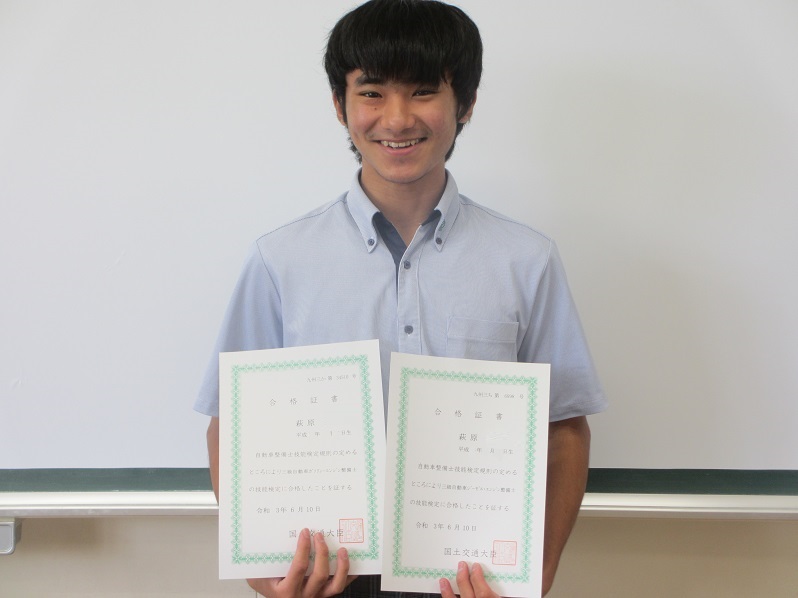 合格証書
萩原
平成 年 十 日生
自動車整備士技能検定規則の定める
ところにより三級自動車ガソリン・エンジン整備士
の技能検定に合格したことを証する
令和 3年 6月 10日
国土交通大臣
合格証書
萩原
平成 年 月 日生
自動車整備士技能検定規則の定める
ところにより三級自動車ジーゼル・エンジン整備士
の技能検定に合格したことを証する
令和 3年 6月 10日
国土交通大臣